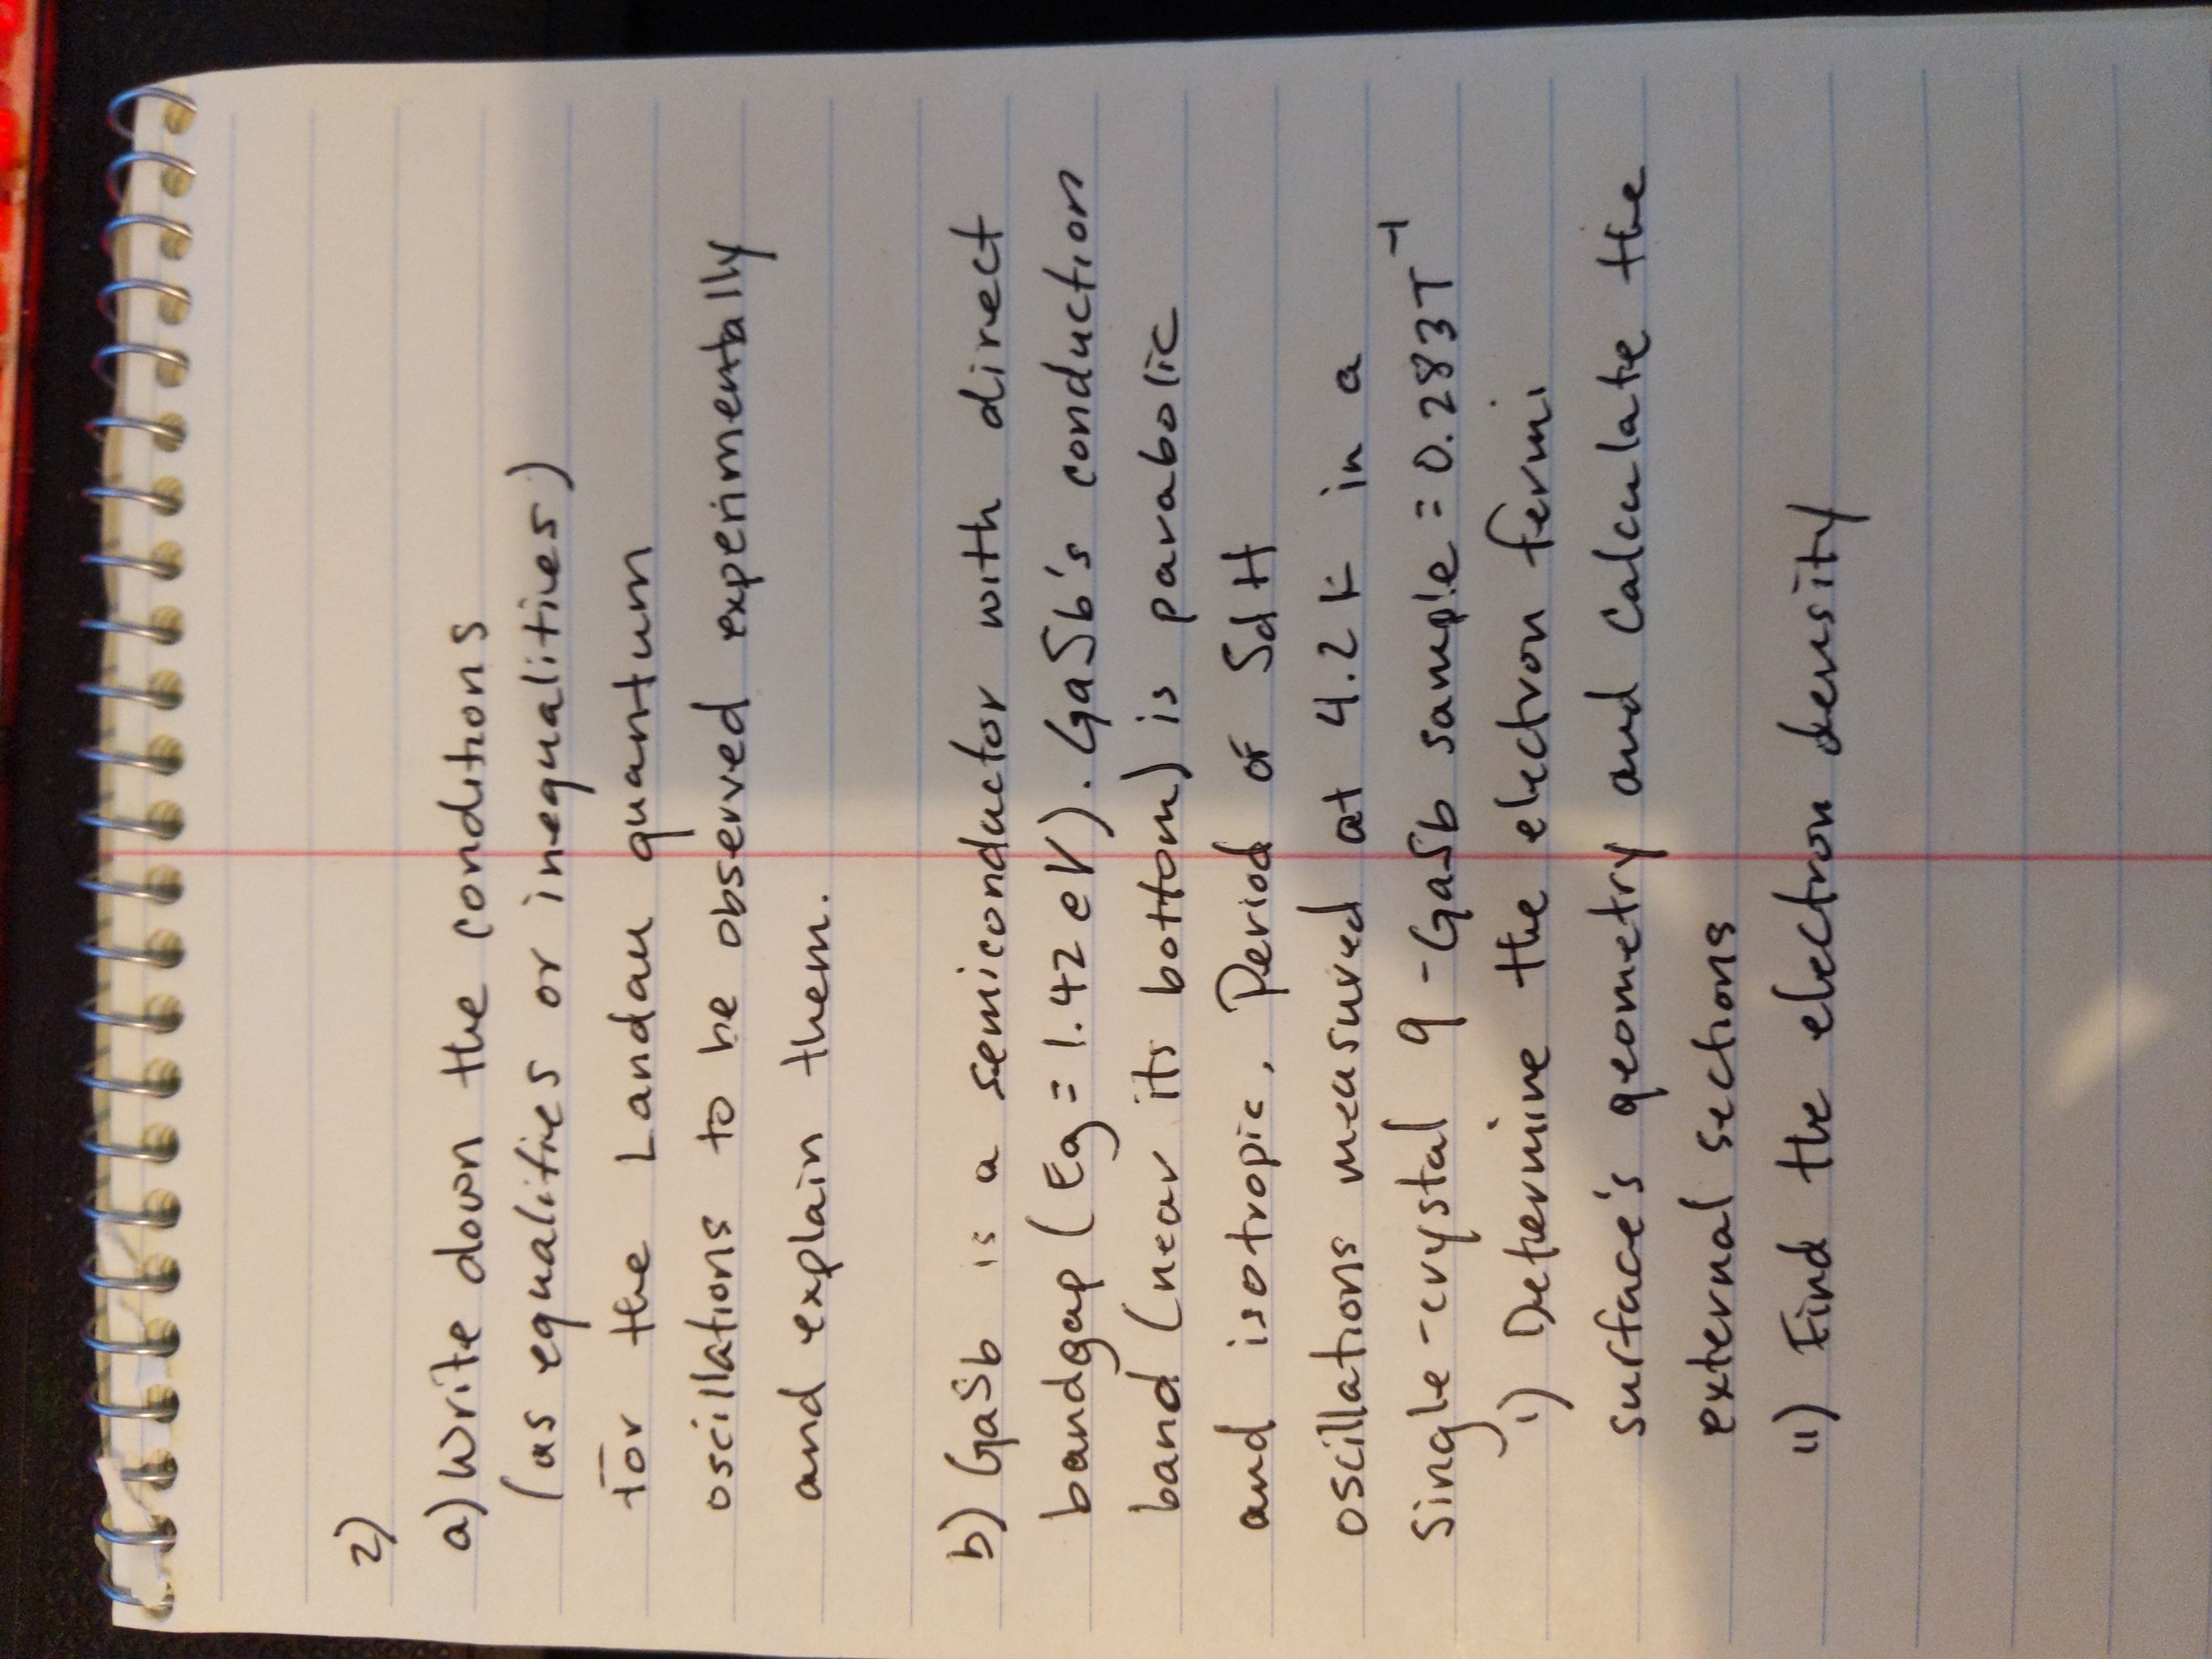 2)
a) Write down the conditions
(as equalities or inequalities)
for the Landau quantum
oscillations to be observed experimentally
and explain them.
b) GaSb is a semiconductor with direct
bandgap (Eg = 1.42 eV). GaSb's conduction
band (near its bottom) is parabolic
and isotropic. Period of SdH
oscillations measured at 4.2 K in a
single-crystal q-GaSb sample = 0.283T⁻¹
i) Determine the electron fermi
surface's geometry and calculate the
external sections
ii) Find the electron density